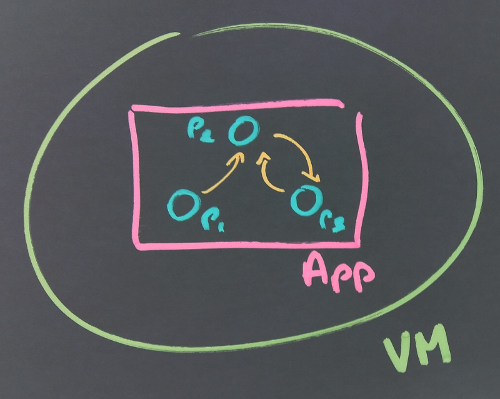 P2
P1
P3
App
VM